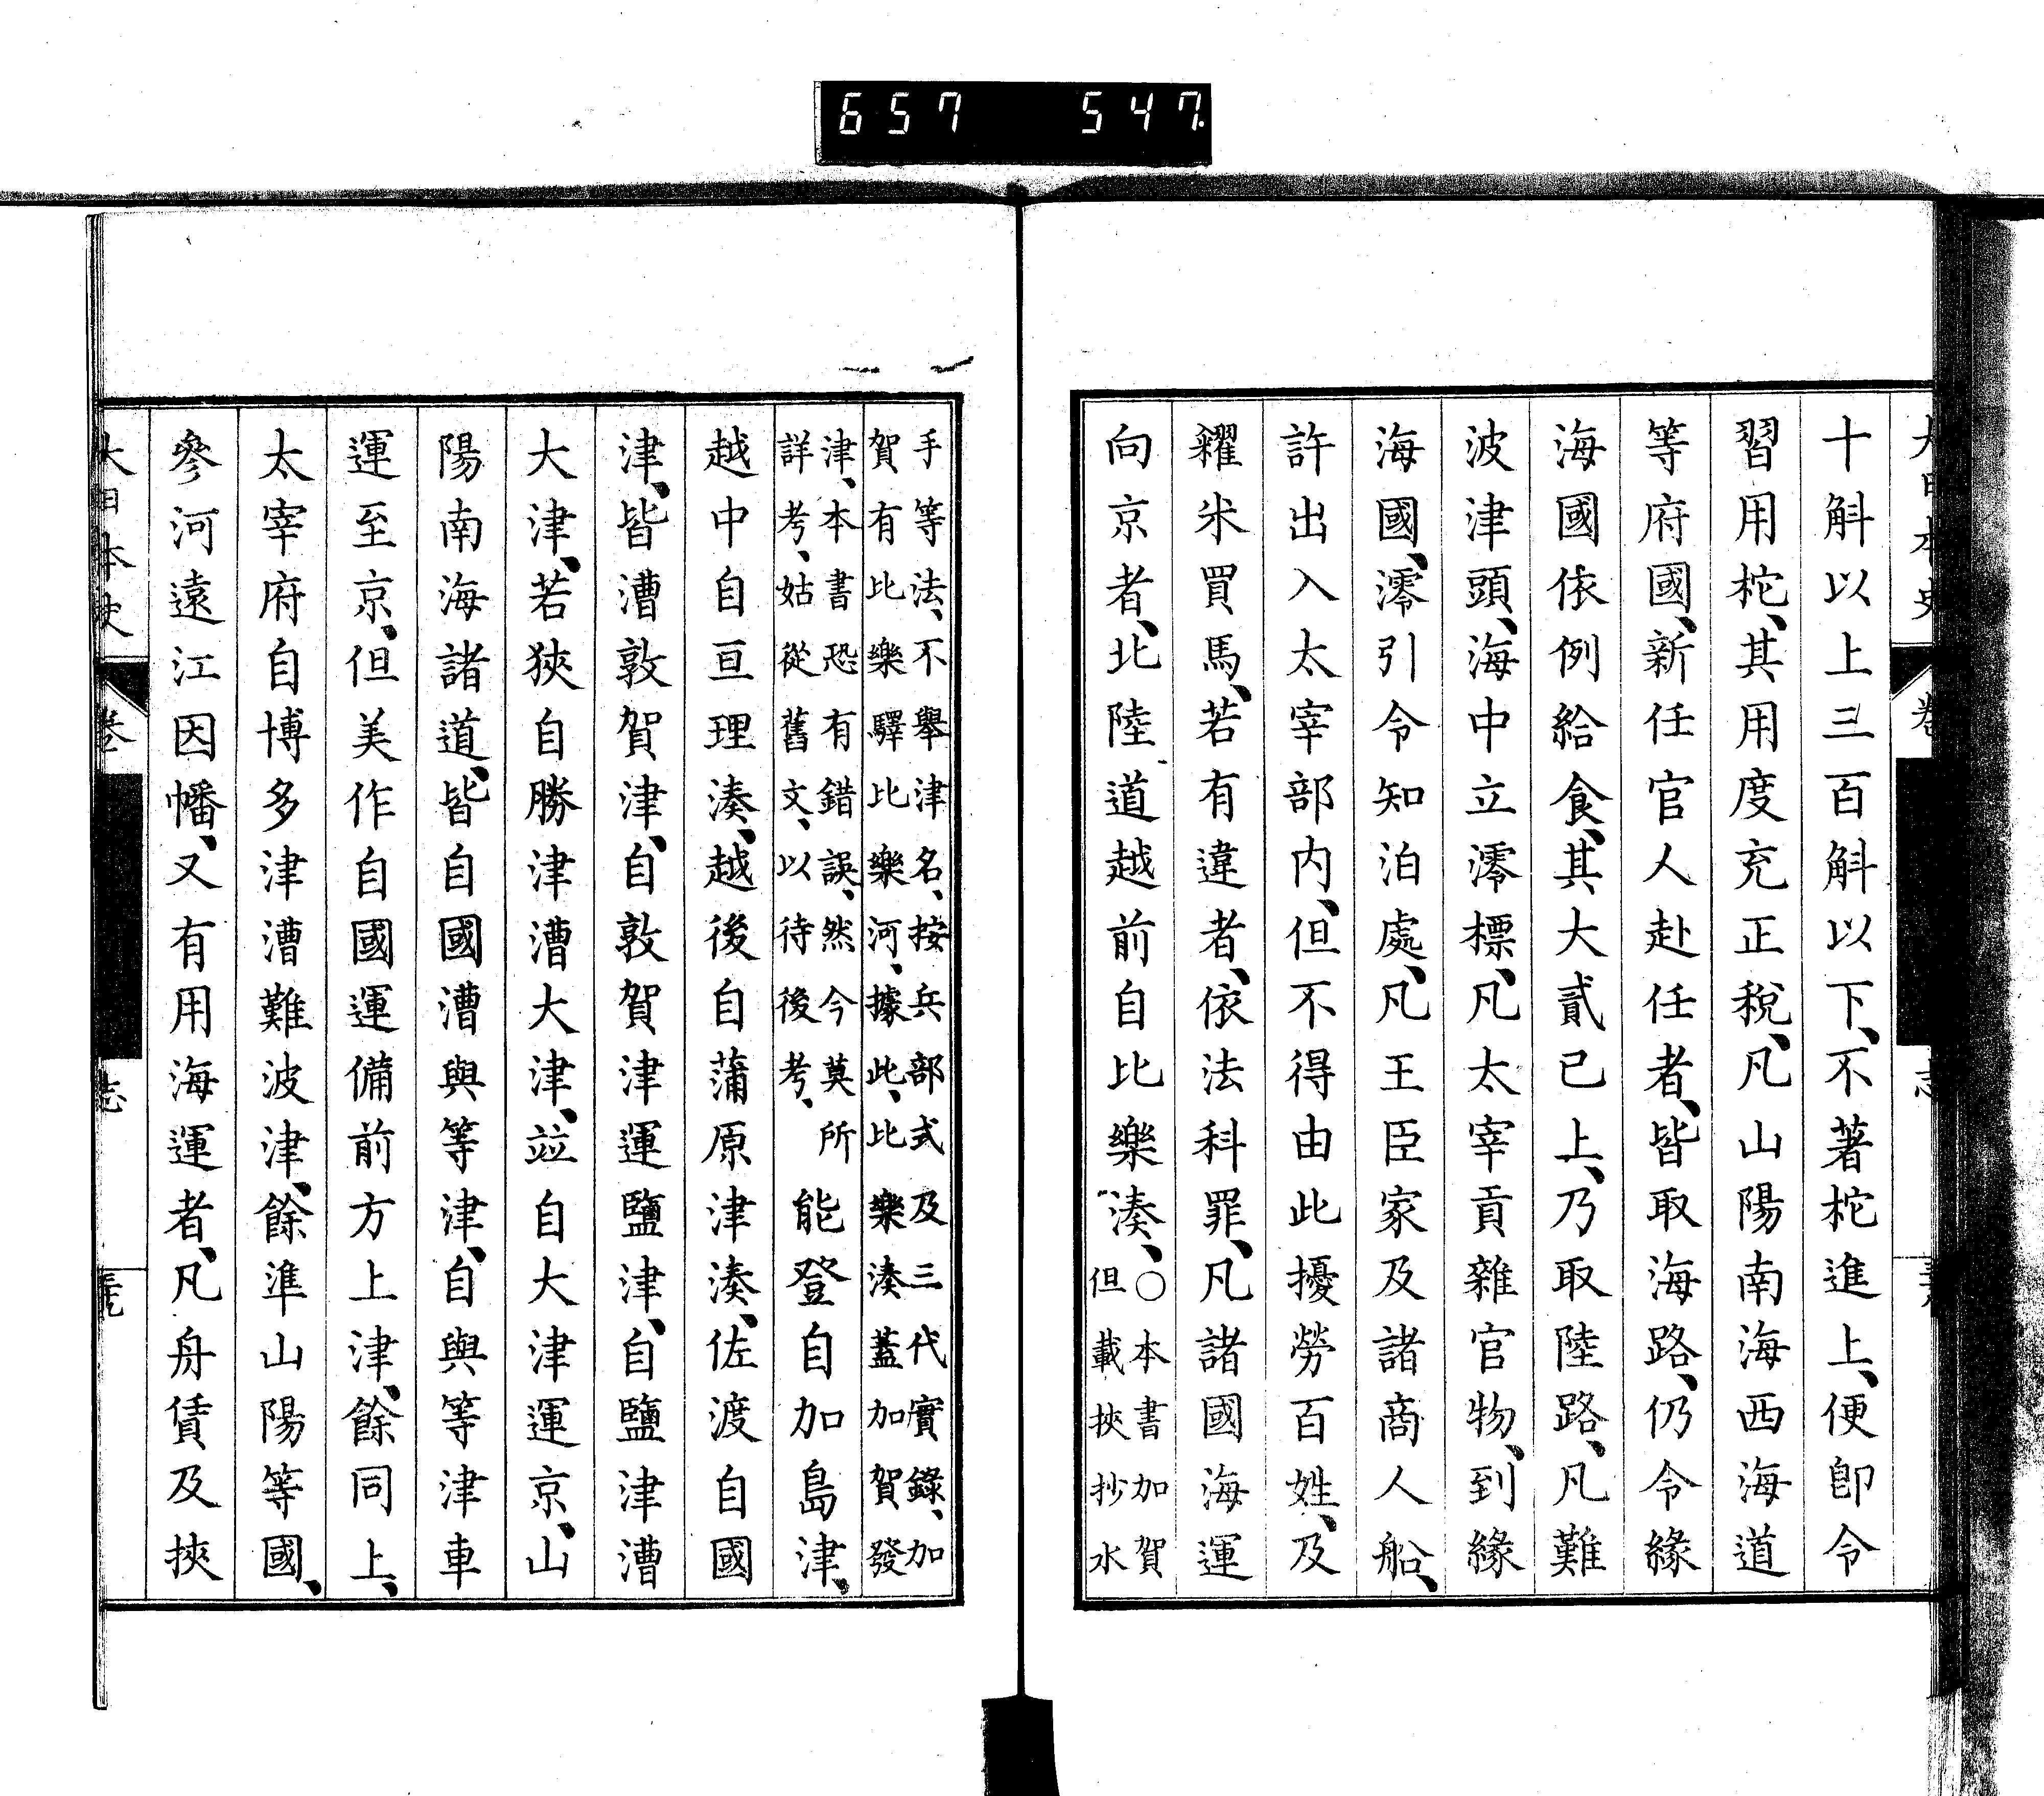 657 547
十斛以上三百斛以下、不著柁進上、便即令
習用柁、其用度充正稅、凡山陽南海西海道
等府國、新任官人赴任者、皆取海路、仍令緣
海國依例給食、其大貳已上、乃取陸路、凡難
波津頭、海中立澪標、凡太宰貢雜官物、到緣
海國、澪引令知泊處、凡王臣家及諸商人船、
許出入太宰部內、但不得由此擾勞百姓、及
糴米買馬、若有違者、依法科罪、凡諸國海運
向京者、北陸道越前自比樂湊、○本書加賀但載挾抄水
手等法、不舉津名、按兵部式及三代實錄、加
賀有比樂驛比樂河、據此、比樂湊蓋加賀發
津、本書恐有錯誤、然今莫所詳考、姑從舊文、以待後考、能登自加島津、
越中自亘理湊、越後自蒲原津湊、佐渡自國
津、皆漕敦賀津、自敦賀津運鹽津、自鹽津漕
大津、若狹自勝津漕大津、竝自大津運京、山
陽南海諸道、皆自國漕與等津、自與等津車
運至京、但美作自國運備前方上津、餘同上、
太宰府自博多津漕難波津、餘準山陽等國、
參河遠江因幡、又有用海運者、凡舟賃及挾
大日本史 卷 志